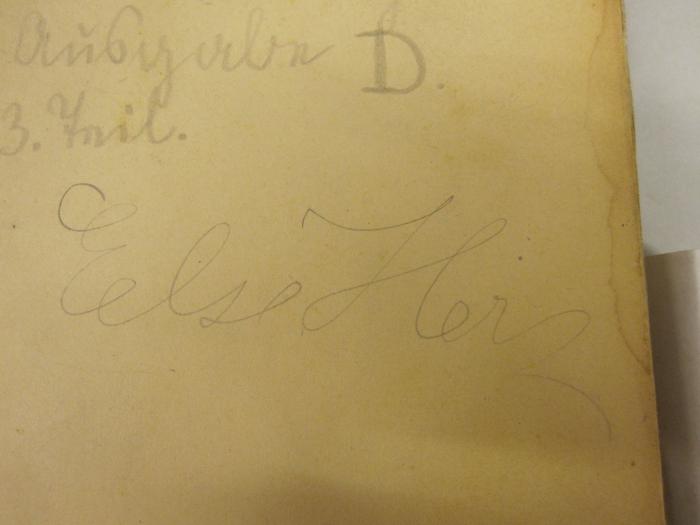 Ausgabe D.
3. Teil.
Else Herz